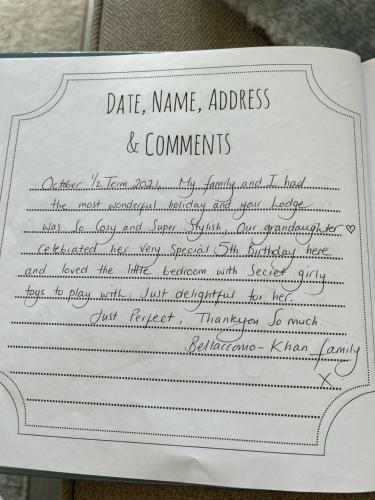 DATE, NAME, ADDRESS
& COMMENTS
October 1/2 Term 2021. My family and I had
the most wonderful holiday and your Lodge
was so Cosy and Super Stylish, Our grandaughter ♡
celebrated her very Special 5th Birthday here
and loved the little bedroom with Secret girly
toys to play with. Just delightful for her.
Just Perfect, Thankyou So much.
Bellaccomo-Khan family
X